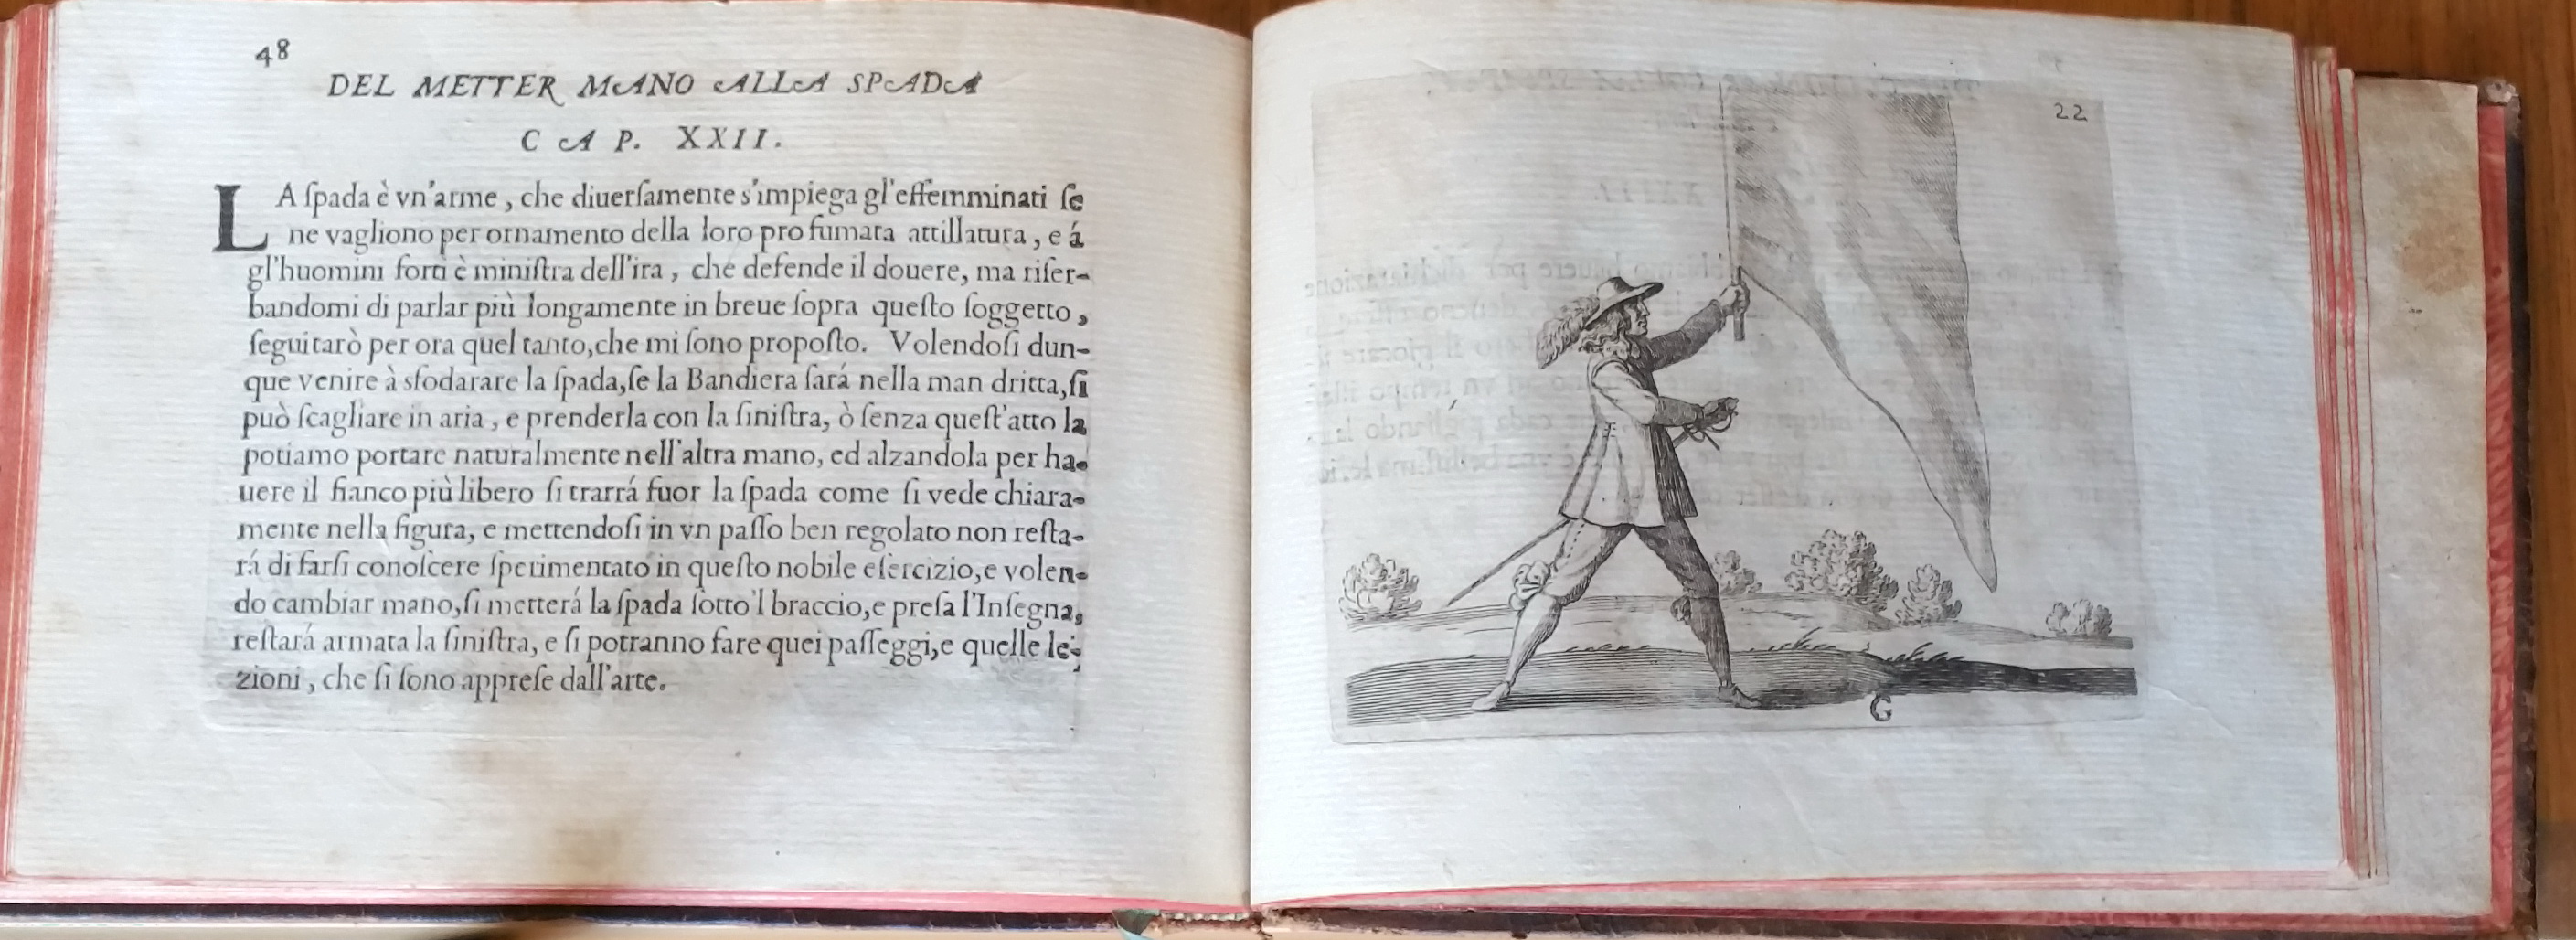 48
DEL METTER MANO ALLA SPADA
CAP. XXII.
LA ſpada è vn'arme, che diuerſamente s'impiega gl'effemminati ſe
ne vagliono per ornamento della loro profumata attillatura, e á
gl'huomini forti è miniſtra dell'ira, che defende il douere, ma riſer-
bandomi di parlar più longamente in breue ſopra queſto ſoggetto,
ſeguitarò per ora quel tanto, che mi ſono propoſto. Volendoſi dun-
que venire à sfodarare la ſpada, ſe la Bandiera ſará nella man dritta, ſi
può ſcagliare in aria, e prenderla con la ſiniſtra, ò ſenza queſt'atto la
potiamo portare naturalmente nell'altra mano, ed alzandola per ha-
uere il fianco più libero ſi trarrá fuor la ſpada come ſi vede chiara-
mente nella figura, e mettendoſi in vn paſſo ben regolato non reſta-
rá di farſi conoſcere ſperimentato in queſto nobile eſercizio, e volen-
do cambiar mano, ſi metterá la ſpada ſotto'l braccio, e preſa l'Inſegna,
reſtará armata la ſiniſtra, e ſi potranno fare quei paſſeggi, e quelle le-
zioni, che ſi ſono appreſe dall'arte.
22
G